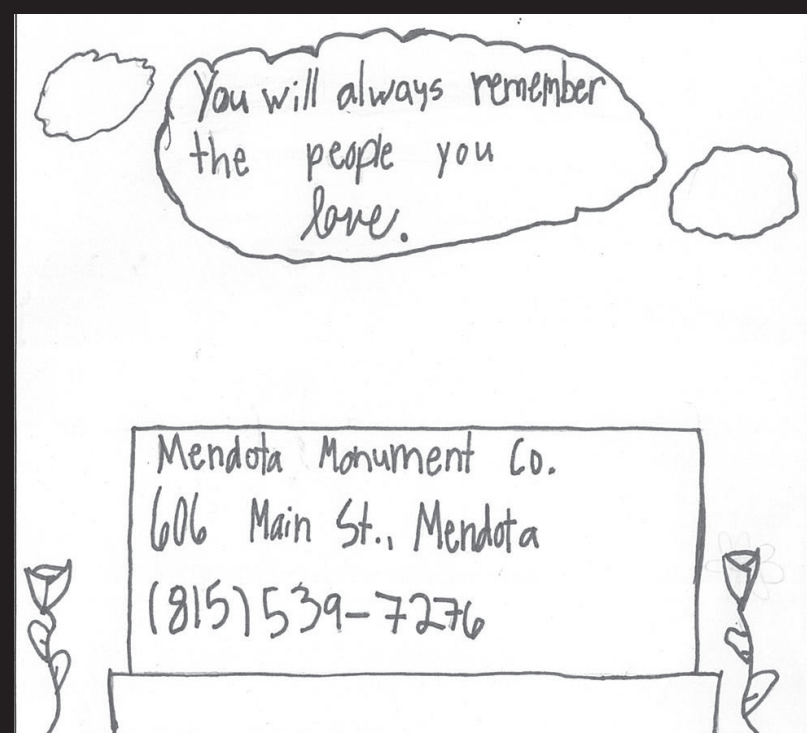 You will always remember
the people you
love.
Mendota Monument Co.
606 Main St., Mendota
(815) 539-7276